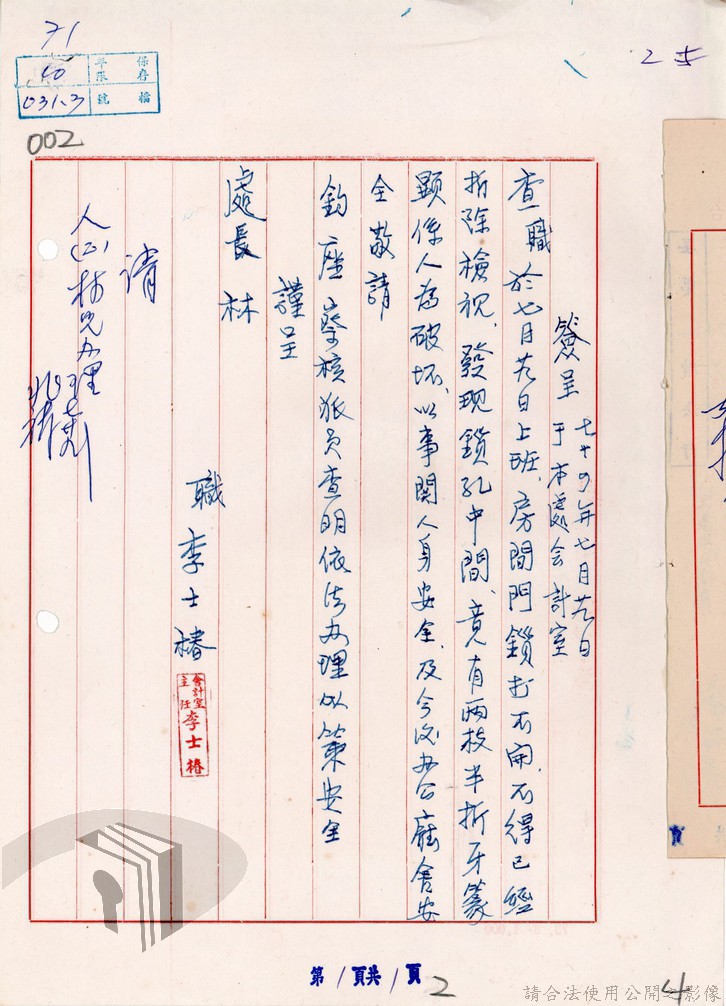 71
保存年限
10
檔號
031.3
002
25
簽呈 七十四年七月廿日 于本處會計室
查職於七月廿日上班，房間門鎖打不開，不得已經
拆除檢視，發現鎖孔中間，竟有兩枝半折牙籤
顯係人為破坏，以事関人身安全，及今后办公廳舍安
全敬請
鈞座 察核派員查明依法办理以策安全
謹呈
處長 林
職 李士椿
會計室主任 李士椿
請
人(二)
办理
第1頁共1頁
2
4
請合法使用公開之影像